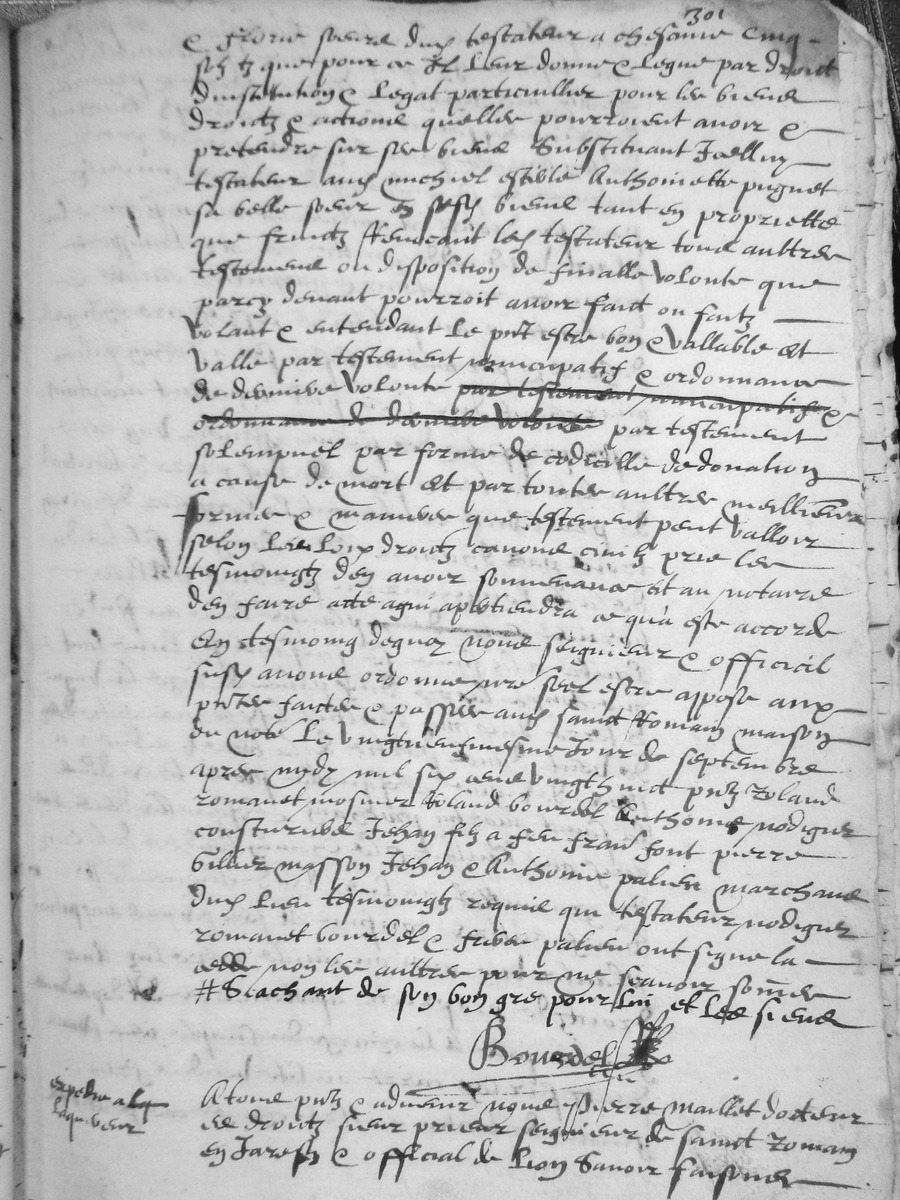 301
& florie soeure dud testateur a chescune cinq
solz tz que pour ce Il leur donne & legue par droict
dinstitution & legat particullier pour les biens
droictz & actions quelles pourroient avoir &
pretendre sur ses biens Substituant Icelluy
testateur aud michiel estible Anthoinette puguet
sa belle soeur en sesd biens tant en proprietté
que fruictz Renocant led testateur tous aultres
testemens ou disposition de finalle volonte que
parcy devant pourroit avoir faict ou faitz
volant & entendant le pnt estre bon & vallable et
valle par testement nuncupatif & ordonnance
de derniere volonte par testement nuncupatif &
ordonnance de derniere volonte par testement
solempnel par forme de codicille de donation
a cause de mort et par toutes aultres meillieures
formes & manieres que testement peut valloir
selon les loix droictz canons civilz prie les
tesmoingtz den avoir souvenance et au notaire
den faire acte a qui apertiendra ce qua este accorde
En tesmoing dequoy nous seignieur & official
susd avons ordonne nre seel estre appose aux
pntes faictes & passées aud sainct Romain maison
du noté le vingtneufiesme Jour de septembre
apres midy mil six cens vingthuict pntz roland
romanet mosnier Roland bourdel Anthoine nodiguer
consturiers Jehan filz a feu frans font pierre
Gillier masson Jehan & Anthonie palieu marchans
dud lieu tesmoingtz requis qui testateur nodiguer
romanet bourdel & freres palieu ont signe la
cedde non les aultres pour ne scavoir somes
# Slachant de son bon gre pour lui et les siens
Bourdel
expedie a lq
laqueveur
A tous pntz & advenir nous Pierre maillet docteur
es droictz sieur prieur seignieur de sainct romain
en Jarestz & official de Lion Savoir faisons